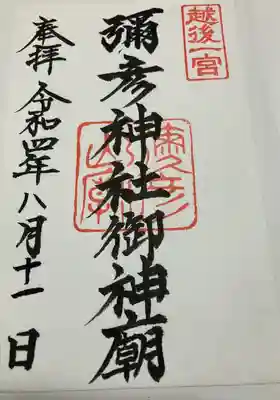 越後一宮
彌彦神社御神廟
奉拝 令和四年八月十一日